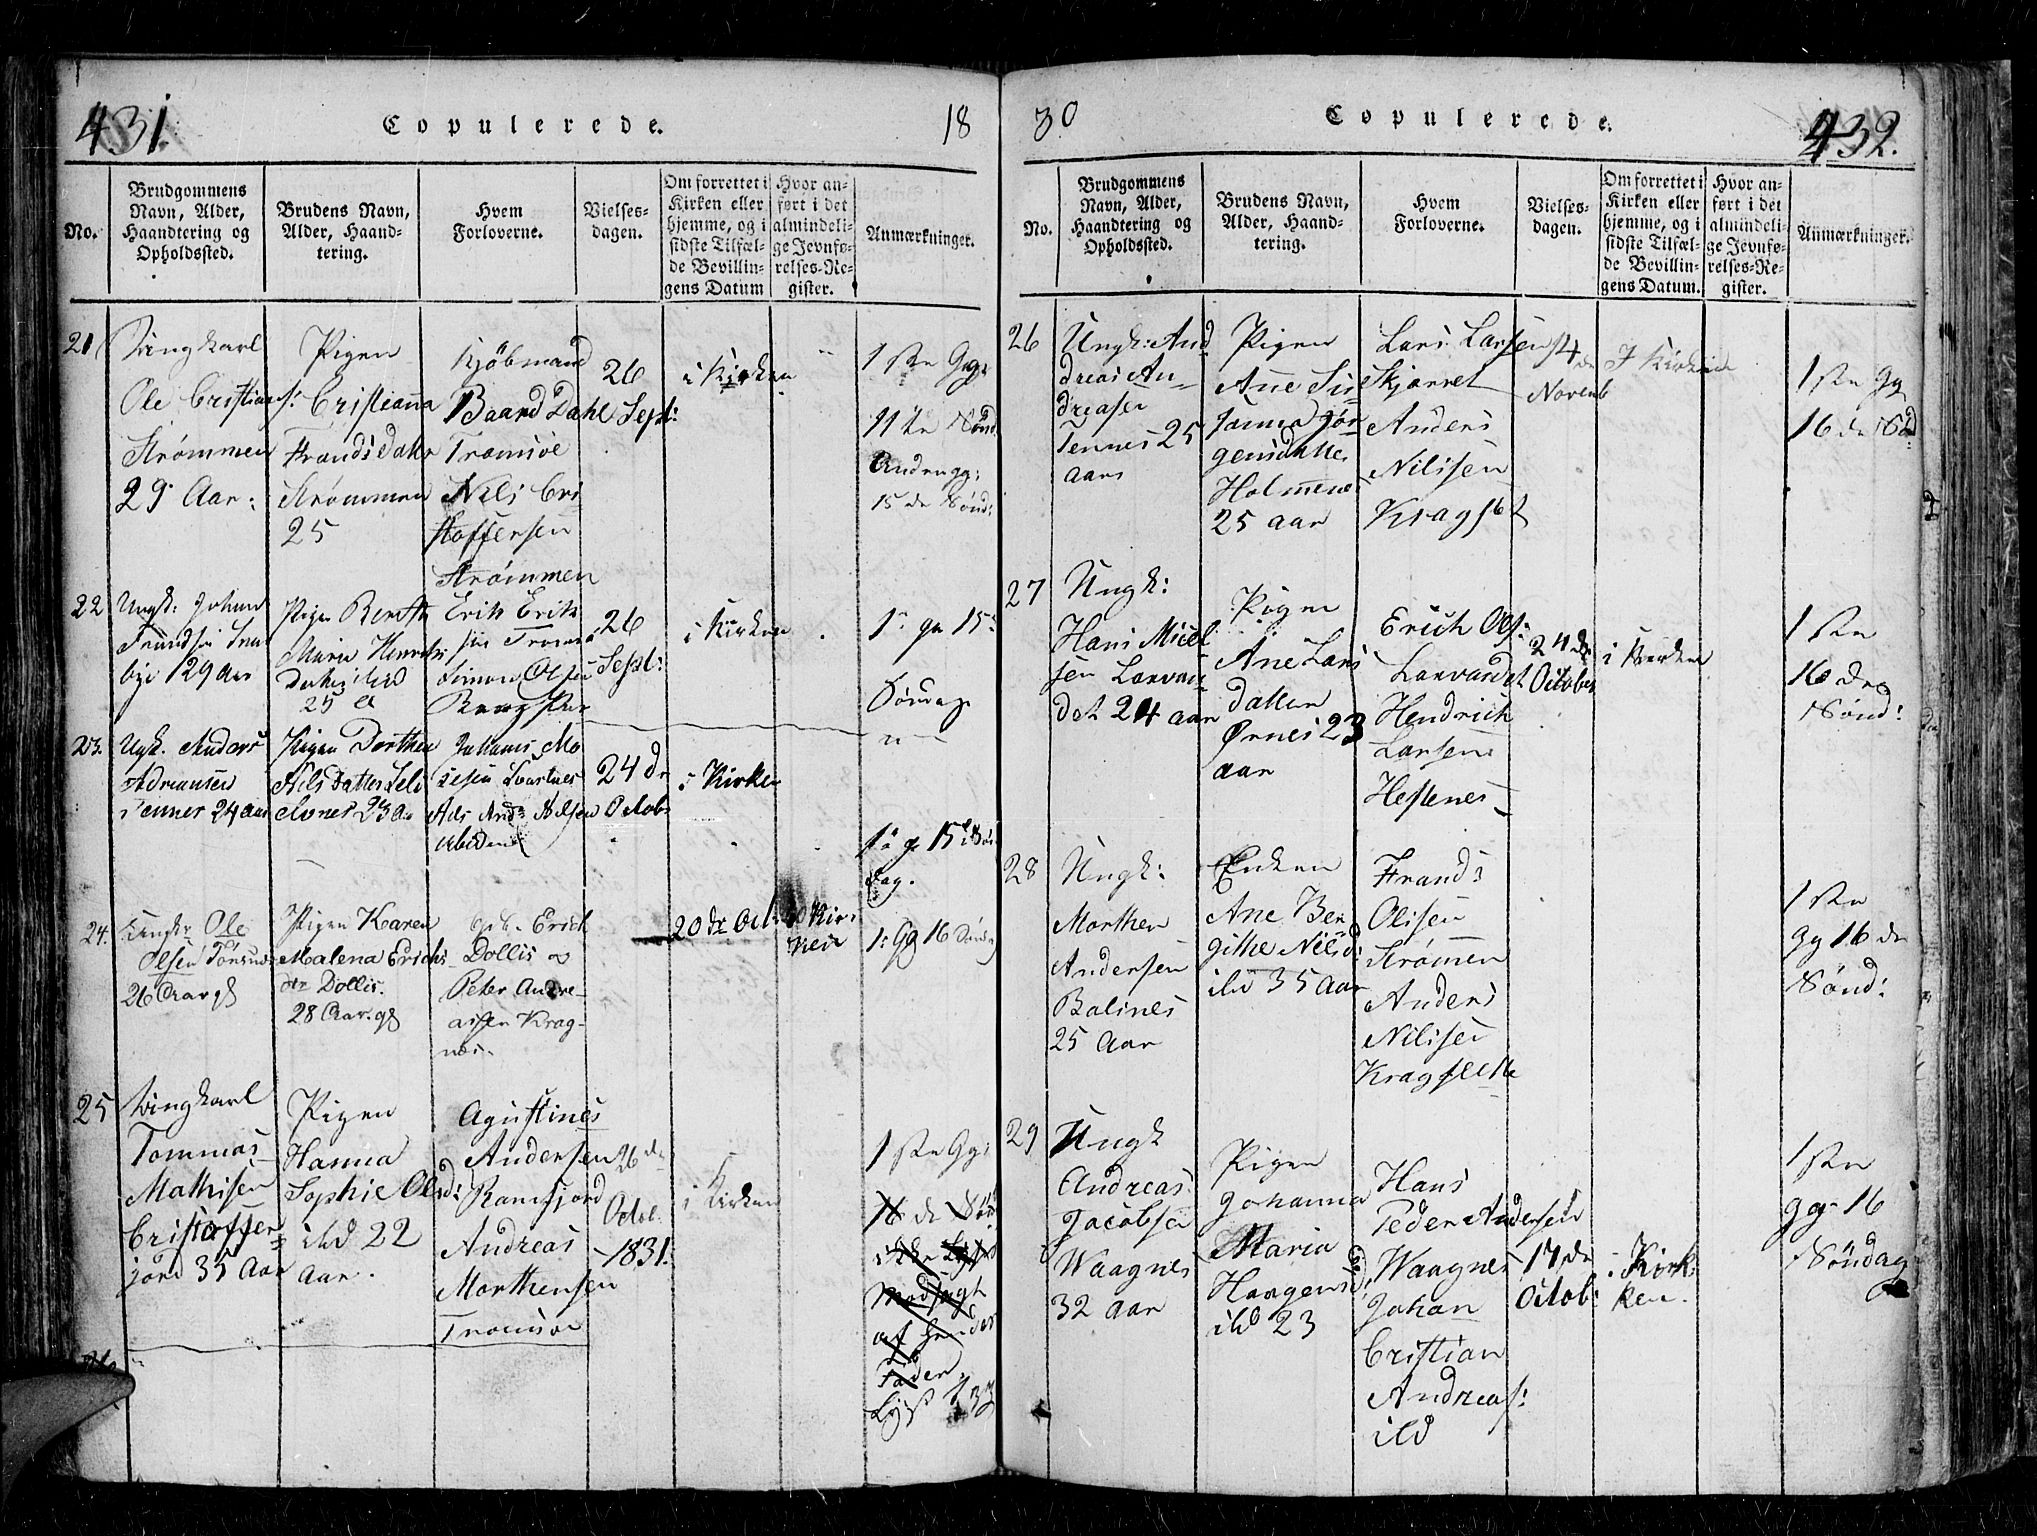 431.
Copulerede.
18
No.
Brudgommens Navn, Alder, Haandtering og Opholdssted.
Brudens Navn, Alder, Haandtering.
Hvem Forloverne.
Vielsesdagen.
Om forrettet i Kirken eller hjemme, og i sidste Tilfælde Bevillingens Datum
Hvor anført i det almindelige Jevnførelses-Register.
Anmærkninger.
21
Ungkarl
Ole Cristians:
Strømmen
29 Aar:
Pigen
Cristianna
Frandsdatr
Strømmen
25
Kjöbmand
Baard Dahl
Tromsöe
Nels Cri
stoffersen
Strømmen
26
Sept:
i Kirken
1 ste Gg:
11te Sönd
Anden gg:
15 de Sönd:
22
Ungk: Johan
29 Aar
Pigen Bereth
Maria Henrichs
25
Erik Erik
sen Tromsö
Simon Olsen
26
Sept:
i Kirken
1. gg 15:
Söndag
23.
Ungk. Anders
Adriansen
Tennes 24 aar
Pigen Dorthea
Nils Datter Sels
elvnes 23 a
Johannes Mo
sesen Svartnes
Nils And: Nilsen
24 de
Octob:
i Kirken
1. g. 15 Sön
dag.
24.
Ungk: Ole
Olsen Tønsnes
26 Aar gl
Pigen Karen
Malena Erichs
dtr Dollis.
28 Aar. gl
Erich
Dollis og
Peter Andre-
assen Krag-
næs.
20 de Oct:
Kir-
ken
1: Gg 16 Söndag
25
Ungkarl
Tommas
Mathisen
Cristoffer
jord 35 Aar
Pigen
Hanna
Sophie Olsd:
ibd 22
Aar.
Agustines
Andersen
Ramfjord
Andreas
Morthensen
Tromsöe
26 de
Octob.
1831.
i Kirken
1 ste Gg:
16 de Sönd
ikke Lyst
Modsagt
af hendes
Fader.
Lyst
30
Copulerede.
432.
No.
Brudgommens Navn, Alder, Haandtering og Opholdssted.
Brudens Navn, Alder, Haandtering.
Hvem Forloverne.
Vielsesdagen.
Om forrettet i Kirken eller hjemme, og i sidste Tilfælde Bevillingens Datum.
Hvor anført i det almindelige Jevnførelses-Register.
Anmærkninger.
26
Ungk: And
dreas An-
dreasen
Tennes 25
aars
Pigen
Ane Su
sanna Jør-
gensdatter
Holmenes
25 aar
Lars Larsen
Skjævret
Anders
Nilisen
Kragset
14 de
Novemb
I Kirken
1 ste Gg
16 de Sönd
27
Ungk:
Hans Micel
sen Larvar-
det 24 aar
Pigen
Ane Lars
datter
Ørnes 23
aar
Erich Ols:
Larvardet
Hendrich
Larsen
Hestenes
24 de
October
i Kirken
1 ste
16 de
Sönd:
28
Ungk:
Morthen
Andersen
Balsnes
25 Aar
Enken
Ane Ber
githe Nilsd:
ibd 35 Aar
Frands
Olisen
Strømen
Anders
Nilisen
Kragsette
1 ste
gg 16 de
Sönd:
29
Ungk
Andreas
Jacobsen
Waagnes
32 aar
Pigen
Johanna
Maria
Haagensd:
ibd 23
Hans
Peder Andersen
Waagnes
Johan
Cristian
Andreas:
ibd
17 de
Octob:
i Kirk
ken.
1 ste
gg. 16
Söndag